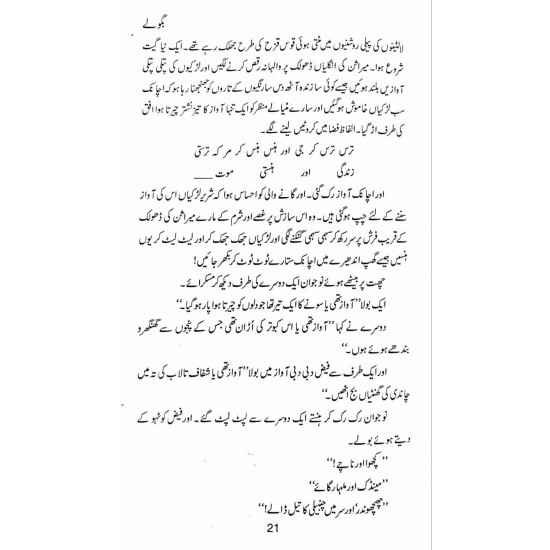 بگولے
لالٹینوں کی پیلی روشنیوں میں مٹتی ہوئی قوس قزح کی طرح جھلک رہے تھے۔ ایک نیا گیت
شروع ہوا۔ میراثن کی انگلیاں ڈھولک پر والہانہ رقص کرنے لگیں اور لڑکیوں کی پتلی پتلی
آوازیں بلند ہوئیں جیسے کوئی سازندہ آٹھ دس سارنگیوں کے تاروں کو جھنجھنا رہا ہو کہ اچانک
سب لڑکیاں خاموش ہوگئیں اور سارے مٹیالے منظر کو ایک تنہا آواز کا تیز نشتر چیرتا ہوا افق
کی طرف اڑ گیا۔ الفاظ فضا میں کروٹیں لینے لگے۔
ترس ترس کر جی اور ہنس ہنس کر مر کہ ترستی
زندگی اور ہنستی موت ___
اور اچانک آواز رک گئی۔ اور گانے والی کو احساس ہوا کہ شریر لڑکیاں اس کی آواز
سننے کے لئے چپ ہوگئی ہیں۔ وہ اس سازش پر غصے اور شرم کے مارے میراثن کی ڈھولک
کے قریب فرش پر سر رکھ کر سہمی سہمی گٹکنے لگی اور لڑکیاں جھک جھک کر اور لیٹ لیٹ کر یوں
ہنسیں جیسے گھپ اندھیرے میں اچانک ستارے ٹوٹ ٹوٹ کر بکھر جائیں!
چھت پر بیٹھے ہوئے نوجوان ایک دوسرے کی طرف دیکھ کر مسکرائے۔
ایک بولا ”آواز تھی یا سونے کا ایک تیر تھا جو دلوں کو چیرتا ہوا پار ہوگیا۔“
دوسرے نے کہا ”آواز تھی یا اس کبوتر کی اُڑان تھی جس کے پنجوں سے گھنگھرو
بندھے ہوئے ہوں۔“
اور ایک طرف سے فیض دبی دبی آواز میں بولا ”آواز تھی یا شفاف تالاب کی تہ میں
چاندی کی گھنٹیاں بج اٹھیں۔“
نوجوان رک رک کر ہنستے ایک دوسرے سے لپٹ لپٹ گئے۔ اور فیض کو ٹہوکے
دیتے ہوئے بولے۔
”کچھوا اور ناچے!“
”مینڈک اور ملہار گائے“
”چھچھوندر، اور سر میں چنبیلی کا تیل ڈالے!“
21